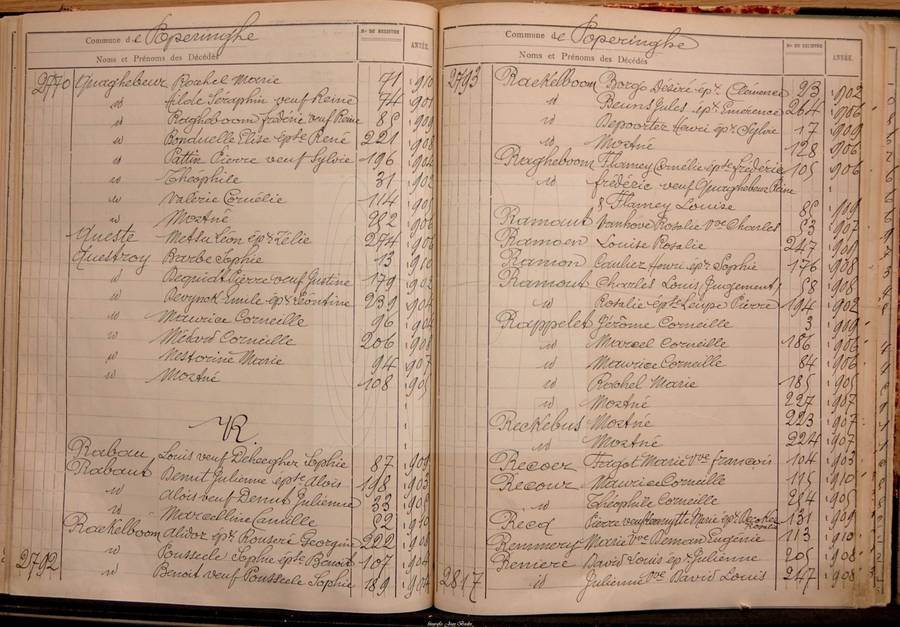 Commune de Poperinghe
Nos DU REGISTRE
ANNÉE
Noms et Prénoms des Décédés
2770 Quaghebeur Rachel Marie 71 1910
id Hilde Séraphin veuf Reine 74 1901
id Ragheboom frédéric veuf Reine 85 1909
id Bonduelle Elise épse René 221 1908
id Pattin Pierre veuf Sylvie 196 1904
id Théophile 31 1902
id Valérie Cornélie 114 1905
id Mortné 252 1906
Queste Metsu Léon épx Zélie 274 1906
Questroy Barbe Sophie 13 1910
id Bequidt Pierre veuf Justine 179 1902
id Devynck Emile épx Léontine 239 1904
id Maurice Corneille 96 1904
id Médard Corneille 206 1908
id Nestorine Marie 94 1907
id Mortné 108 1905
R.
Rabau Louis veuf Dehaeghez Sophie 87 1909
Rabaut Denut Julienne épse Aloïs 198 1903
id Aloïs veuf Denut Julienne 33 1905
id Marcelline Camille 52 1910
Rackelboom Alidor épx Rousere Georgine 222 1908
id Pousseele Sophie épse Benoit 107 1904
2792 id Benoit veuf Pousseele Sophie 189 1904
Commune de Poperinghe
Nos DU REGISTRE
ANNÉE
Noms et Prénoms des Décédés
2793 Rackelboom Borgo Désiré épx Clemence 23 1902
id Beuns Jules épx Emérence 264 1906
id Depoorter Henri épx Sylvie 17 1909
id Mortné 128 1906
Ragheboom Flamey Cornélie épse frédéric 105 1906
id frédéric veuf Quaghebeur Reine
& Flamey Louise 85 1909
Ramout Vanhove Rosalie Vve Charles 53 1907
Ramoen Louise Rosalie 247 1908
Ramon Cauliez Henri épx Sophie 176 1908
Ramout Charles Louis Jugement 58 1908
id Rosalie épse Leupe Pierre 194 1902
Rappelet Jérôme Corneille 3 1909
id Marcel Corneille 186 1906
id Maurice Corneille 84 1906
id Rachel Marie 185 1905
id Mortné 227 1907
Reckebus Mortné 223 1907
id Mortné 224 1907
Recoer Fagot Marie Vve francois 104 1903
Recour Maurice Corneille 115 1910
id Théophile Corneille 214 1905
Recq Pierre veuf Marie épx 131 1909
Remmery Marie Vve Deman Eugénie 113 1910
Reniere David Louis épx Julienne 205 1908
2817 id Julienne Vve David Louis 247 1908